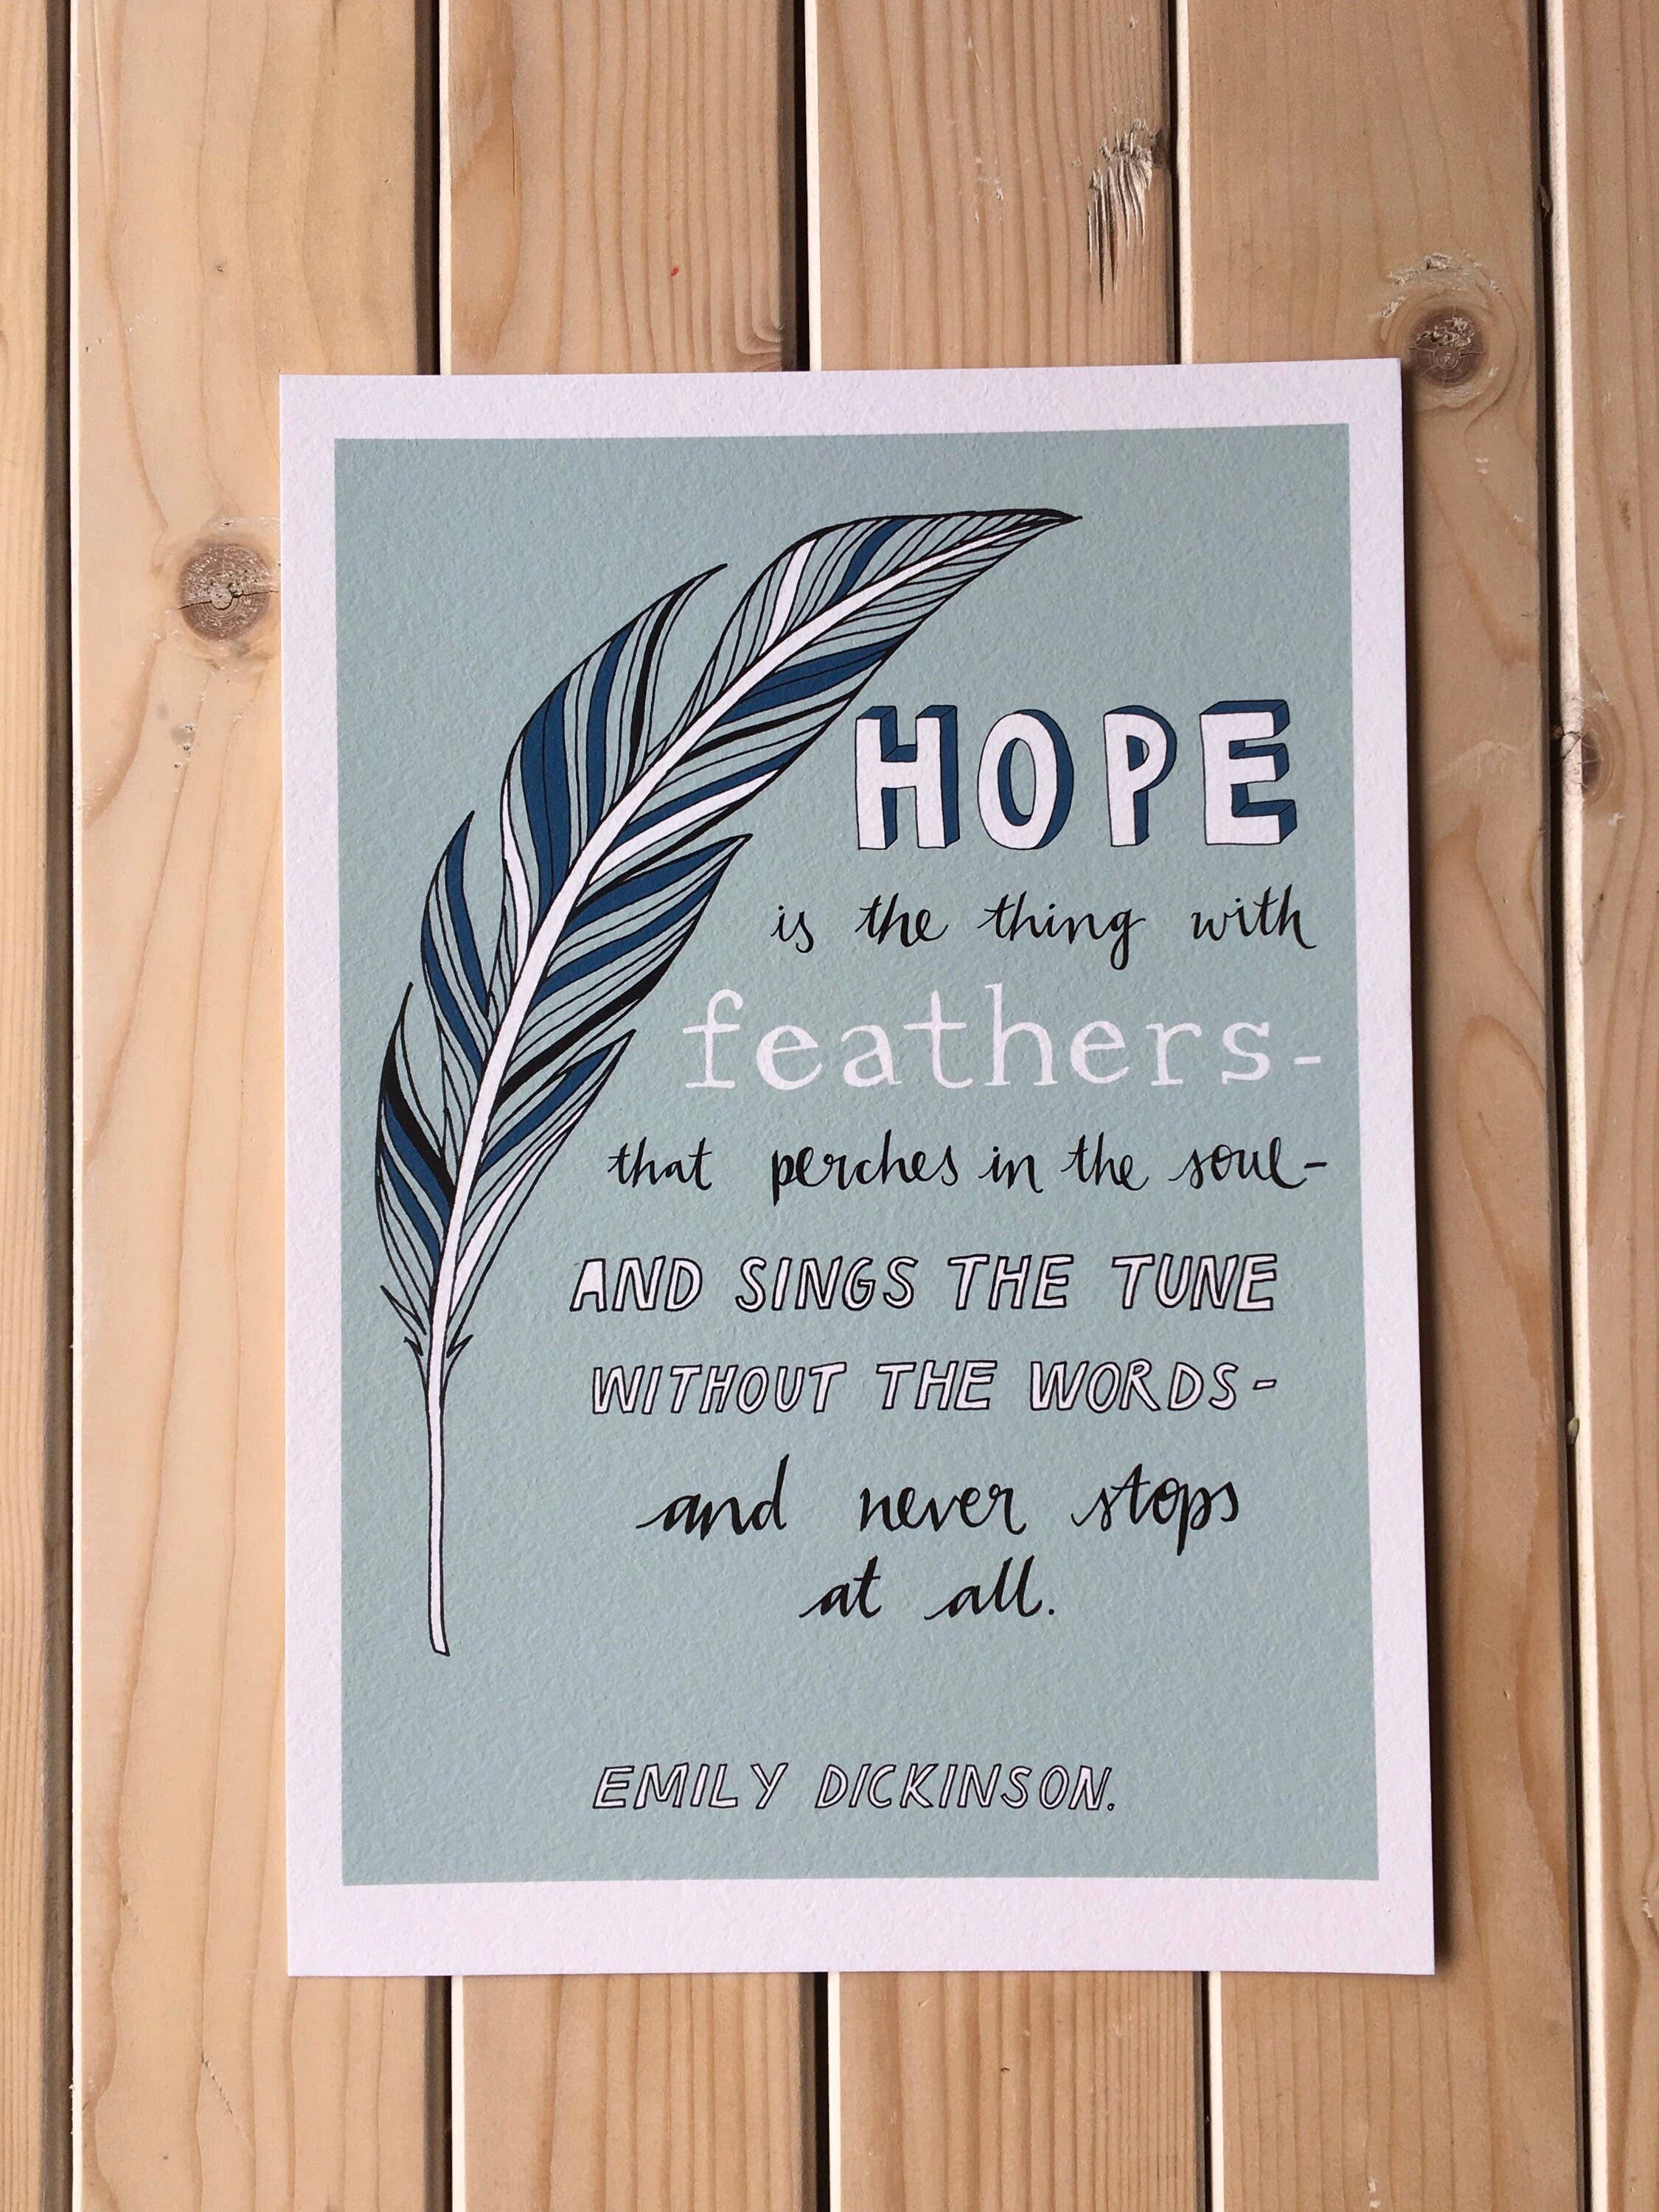 HOPE
is the thing with
feathers-
that perches in the soul-
AND SINGS THE TUNE
WITHOUT THE WORDS-
and never stops
at all.
EMILY DICKINSON.